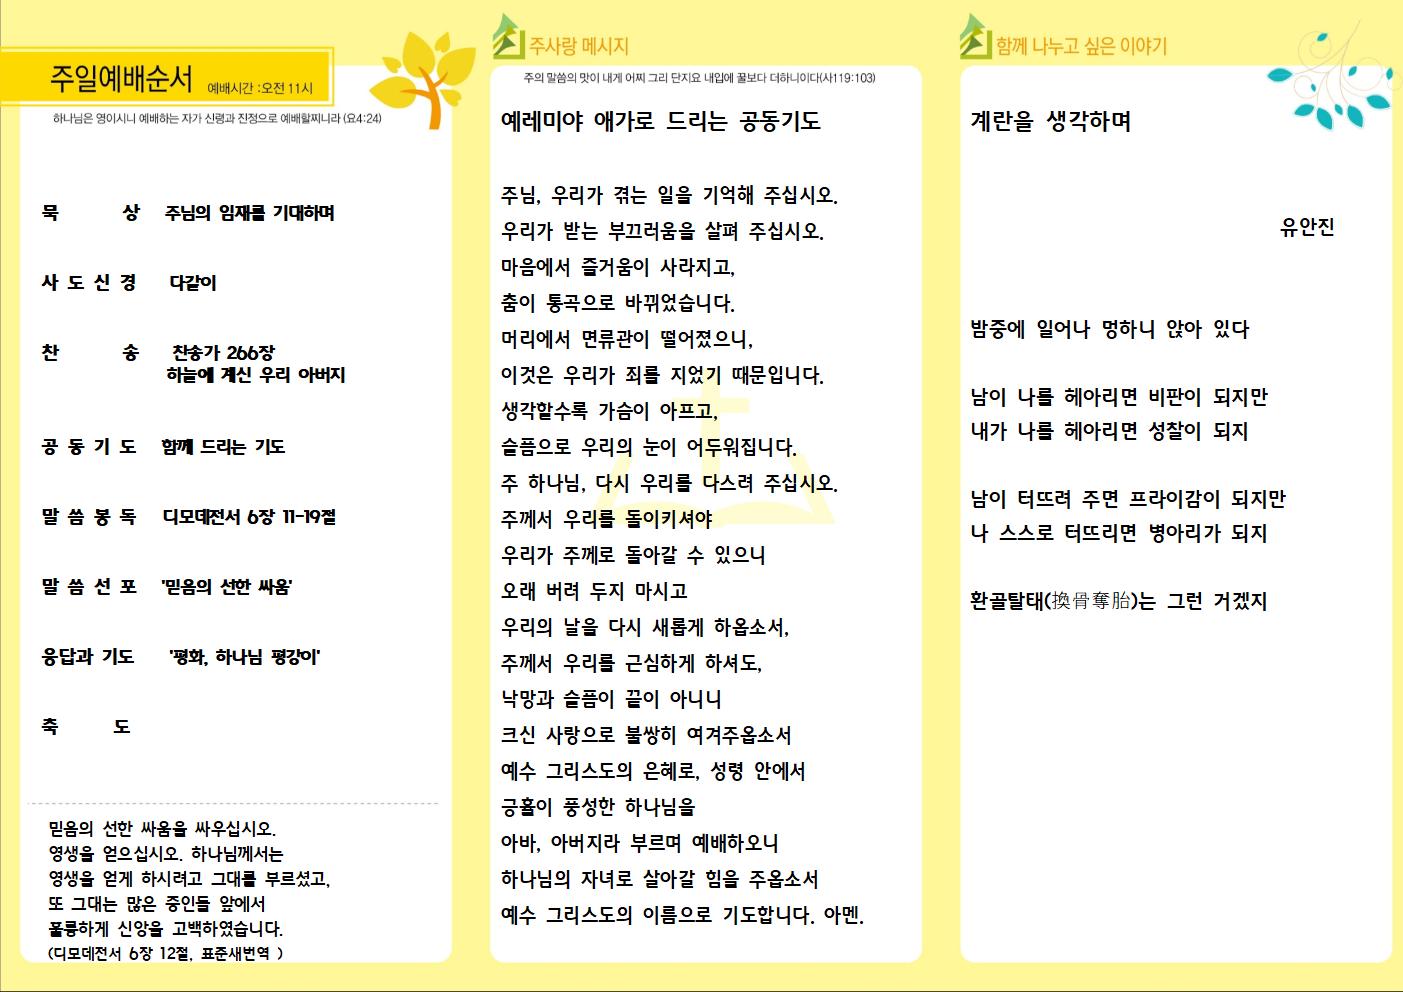 주일예배순서 예배시간 :오전 11시
하나님은 영이시니 예배하는 자가 신령과 진정으로 예배할찌니라 (요4:24)
묵 상 주님의 임재를 기대하며
사 도 신 경 다같이
찬 송 찬송가 266장
하늘에 계신 우리 아버지
공 동 기 도 함께 드리는 기도
말 씀 봉 독 디모데전서 6장 11-19절
말 씀 선 포 '믿음의 선한 싸움'
응답과 기도 '평화, 하나님 평강이'
축 도
믿음의 선한 싸움을 싸우십시오.
영생을 얻으십시오. 하나님께서는
영생을 얻게 하시려고 그대를 부르셨고,
또 그대는 많은 증인들 앞에서
훌륭하게 신앙을 고백하였습니다.
(디모데전서 6장 12절, 표준새번역 )
주사랑 메시지
주의 말씀의 맛이 내게 어찌 그리 단지요 내입에 꿀보다 더하니이다(사119:103)
예레미야 애가로 드리는 공동기도
주님, 우리가 겪는 일을 기억해 주십시오.
우리가 받는 부끄러움을 살펴 주십시오.
마음에서 즐거움이 사라지고,
춤이 통곡으로 바뀌었습니다.
머리에서 면류관이 떨어졌으니,
이것은 우리가 죄를 지었기 때문입니다.
생각할수록 가슴이 아프고,
슬픔으로 우리의 눈이 어두워집니다.
주 하나님, 다시 우리를 다스려 주십시오.
주께서 우리를 돌이키셔야
우리가 주께로 돌아갈 수 있으니
오래 버려 두지 마시고
우리의 날을 다시 새롭게 하옵소서,
주께서 우리를 근심하게 하셔도,
낙망과 슬픔이 끝이 아니니
크신 사랑으로 불쌍히 여겨주옵소서
예수 그리스도의 은혜로, 성령 안에서
긍휼이 풍성한 하나님을
아바, 아버지라 부르며 예배하오니
하나님의 자녀로 살아갈 힘을 주옵소서
예수 그리스도의 이름으로 기도합니다. 아멘.
함께 나누고 싶은 이야기
계란을 생각하며
유안진
밤중에 일어나 멍하니 앉아 있다
남이 나를 헤아리면 비판이 되지만
내가 나를 헤아리면 성찰이 되지
남이 터뜨려 주면 프라이감이 되지만
나 스스로 터뜨리면 병아리가 되지
환골탈태(換骨奪胎)는 그런 거겠지